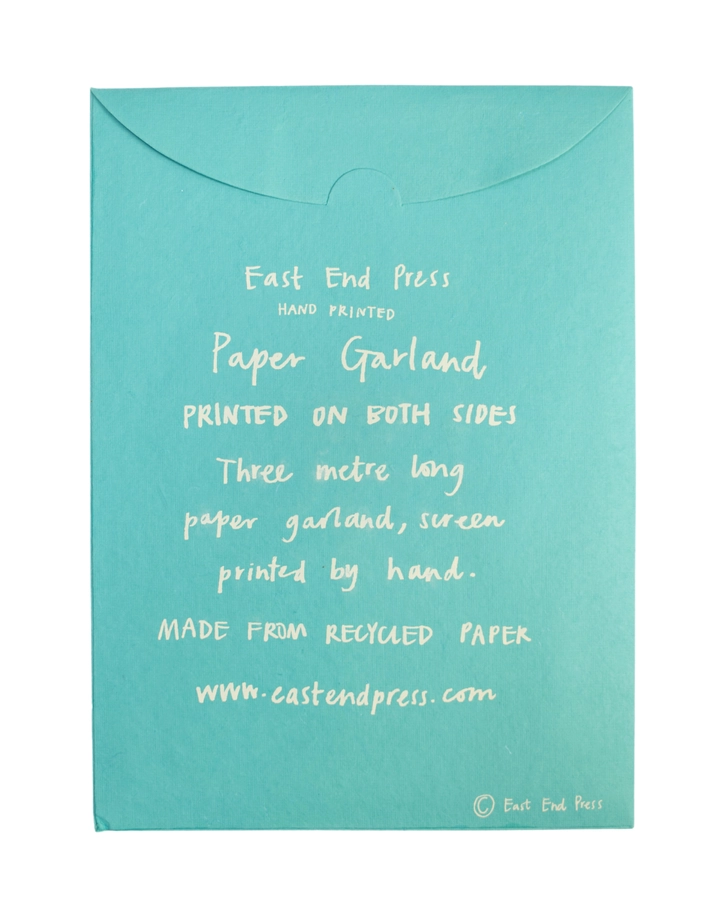 East End Press
HAND PRINTED
Paper Garland
PRINTED ON BOTH SIDES
Three metre long
paper garland, screen
printed by hand.
MADE FROM RECYCLED PAPER
www.eastendpress.com
© East End Press